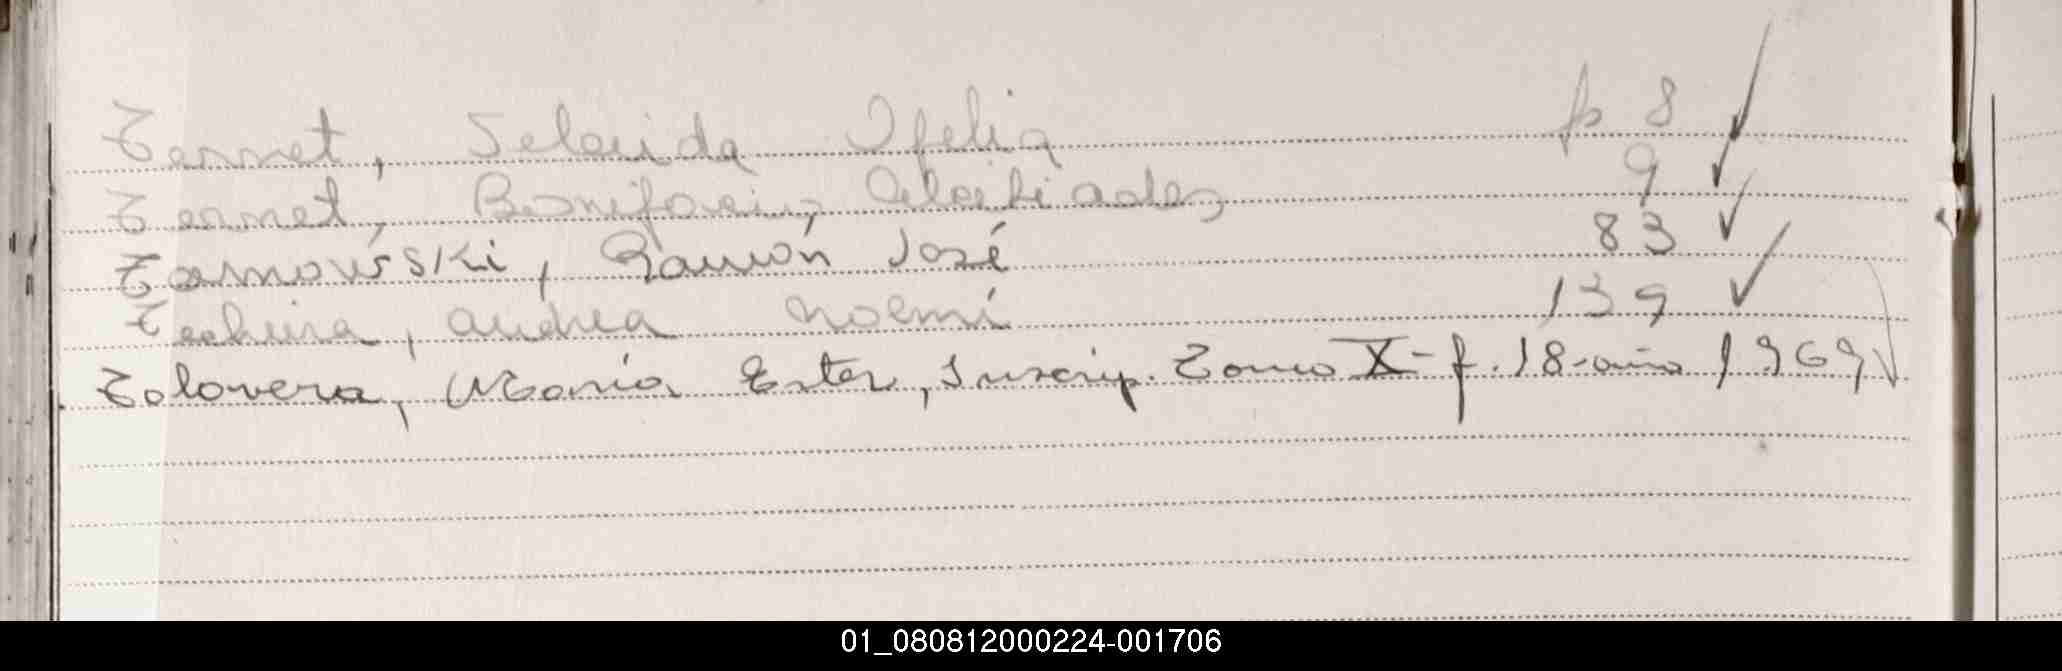 Ternet, Selaida Ofelia f. 8
Ternet, Bonifacio, Alcibiades 9
Tarnowski, Ramón José 83
Techeira, Andrea Noemí 139
Talavera, María Ester, Inscrip. Tomo X - f. 18 - año 1969
01_080812000224-001706